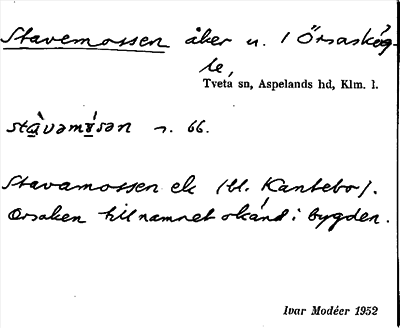 Stavemossen åker u. 1 Örsaskóg-
le,
Tveta sn, Aspelands hd, Klm. l.
stàvəmósən n. 66.
Stavamossen ek (bl. Kantebo).
Orsaken till namnet okänd i bygden.
Ivar Modéer 1952